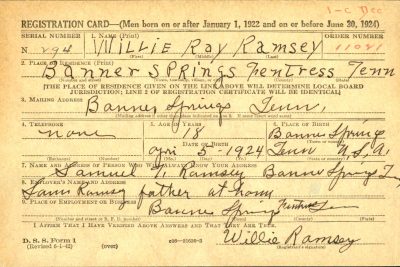 1-C Dec
REGISTRATION CARD—(Men born on or after January 1, 1922 and on or before June 30, 1924)
SERIAL NUMBER 1. NAME (Print) ORDER NUMBER
N 294 Willie Ray Ramsey 11021
2. PLACE OF RESIDENCE (Print)
Banner Springs Fentress Tenn
[THE PLACE OF RESIDENCE GIVEN ON THE LINE ABOVE WILL DETERMINE LOCAL BOARD
JURISDICTION; LINE 2 OF REGISTRATION CERTIFICATE WILL BE IDENTICAL]
3. MAILING ADDRESS
Banner Springs Tenn.
[Mailing address if other than place indicated on line 2. If same insert word same]
4. TELEPHONE 5. AGE IN YEARS 6. PLACE OF BIRTH
none 18 Banner Spring
DATE OF BIRTH
Apri 5 - 1924 Tenn U.S.A.
7. NAME AND ADDRESS OF PERSON WHO WILL ALWAYS KNOW YOUR ADDRESS
Samuel T. Ramsey Banner Spring Tenn
8. EMPLOYER'S NAME AND ADDRESS
Sam Ramsey father at home
9. PLACE OF EMPLOYMENT OR BUSINESS
Banner Spring Fentress Tenn
I AFFIRM THAT I HAVE VERIFIED ABOVE ANSWERS AND THAT THEY ARE TRUE.
D. S. S. Form 1
(Revised 6-1-42) Willie Ramsey